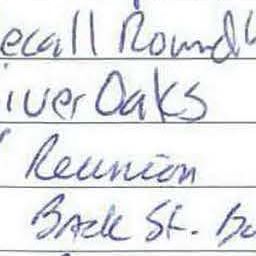 ecall Round
iver Oaks
Reunion
Back St. Bu